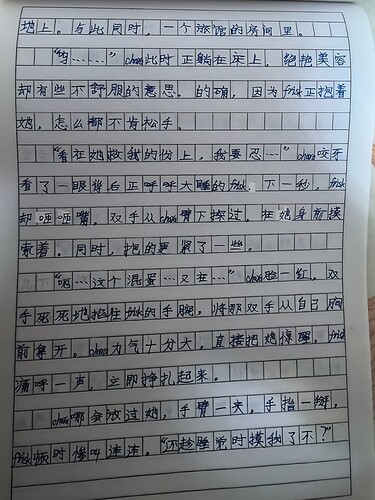 地上。与此同时，一个旅馆的房间里。
“呜……”chara此时正躺在床上，绝艳美容
却有些不舒服的意思。的确，因为frisk正抱着
她，怎么都不肯松手。
“看在她救我的份上，我要忍…”chara咬牙
看了一眼背后正呼呼大睡的frisk。下一秒，frisk
却咂咂嘴，双手从chara臂下探过，在她身前摸
索着。同时，抱的更紧了一些。
“呃…这个混蛋…又在…”chara脸一红，双
手死死地掐住frisk的手腕，将那双手从自己胸
前拿开。chara力气十分大，直接把她惊醒，frisk
痛呼一声，立即挣扎起来。
chara哪会放过她，手臂一夹，手指一掰，
frisk顿时惨叫连连。“还趁睡觉时摸我了不？”